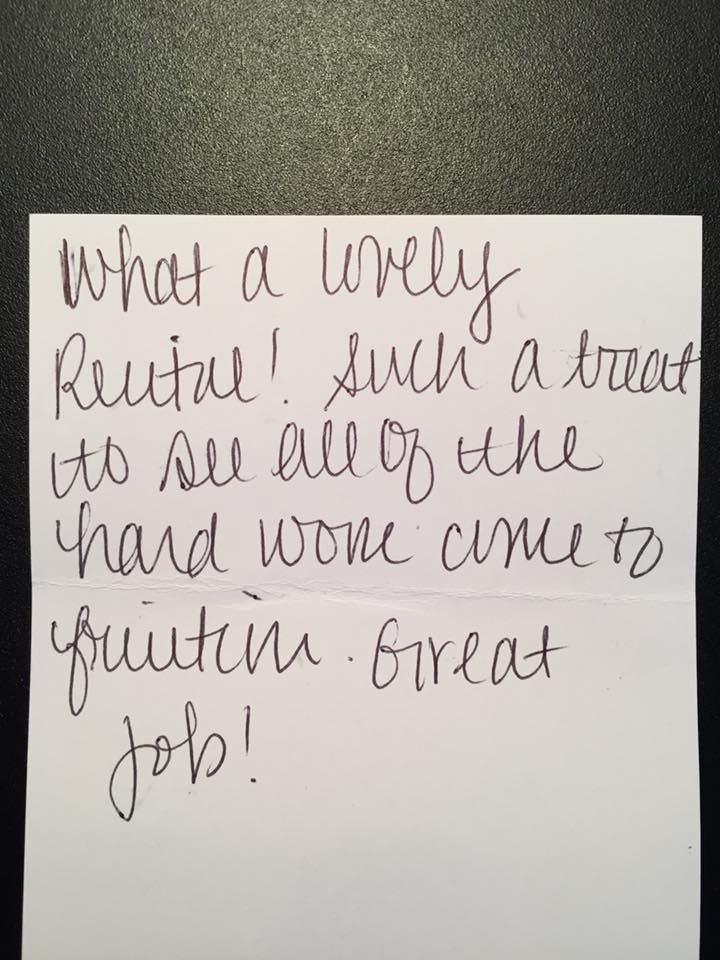 What a lovely
Recital! Such a treat
to see all of the
hard work come to
fruition. Great
job!